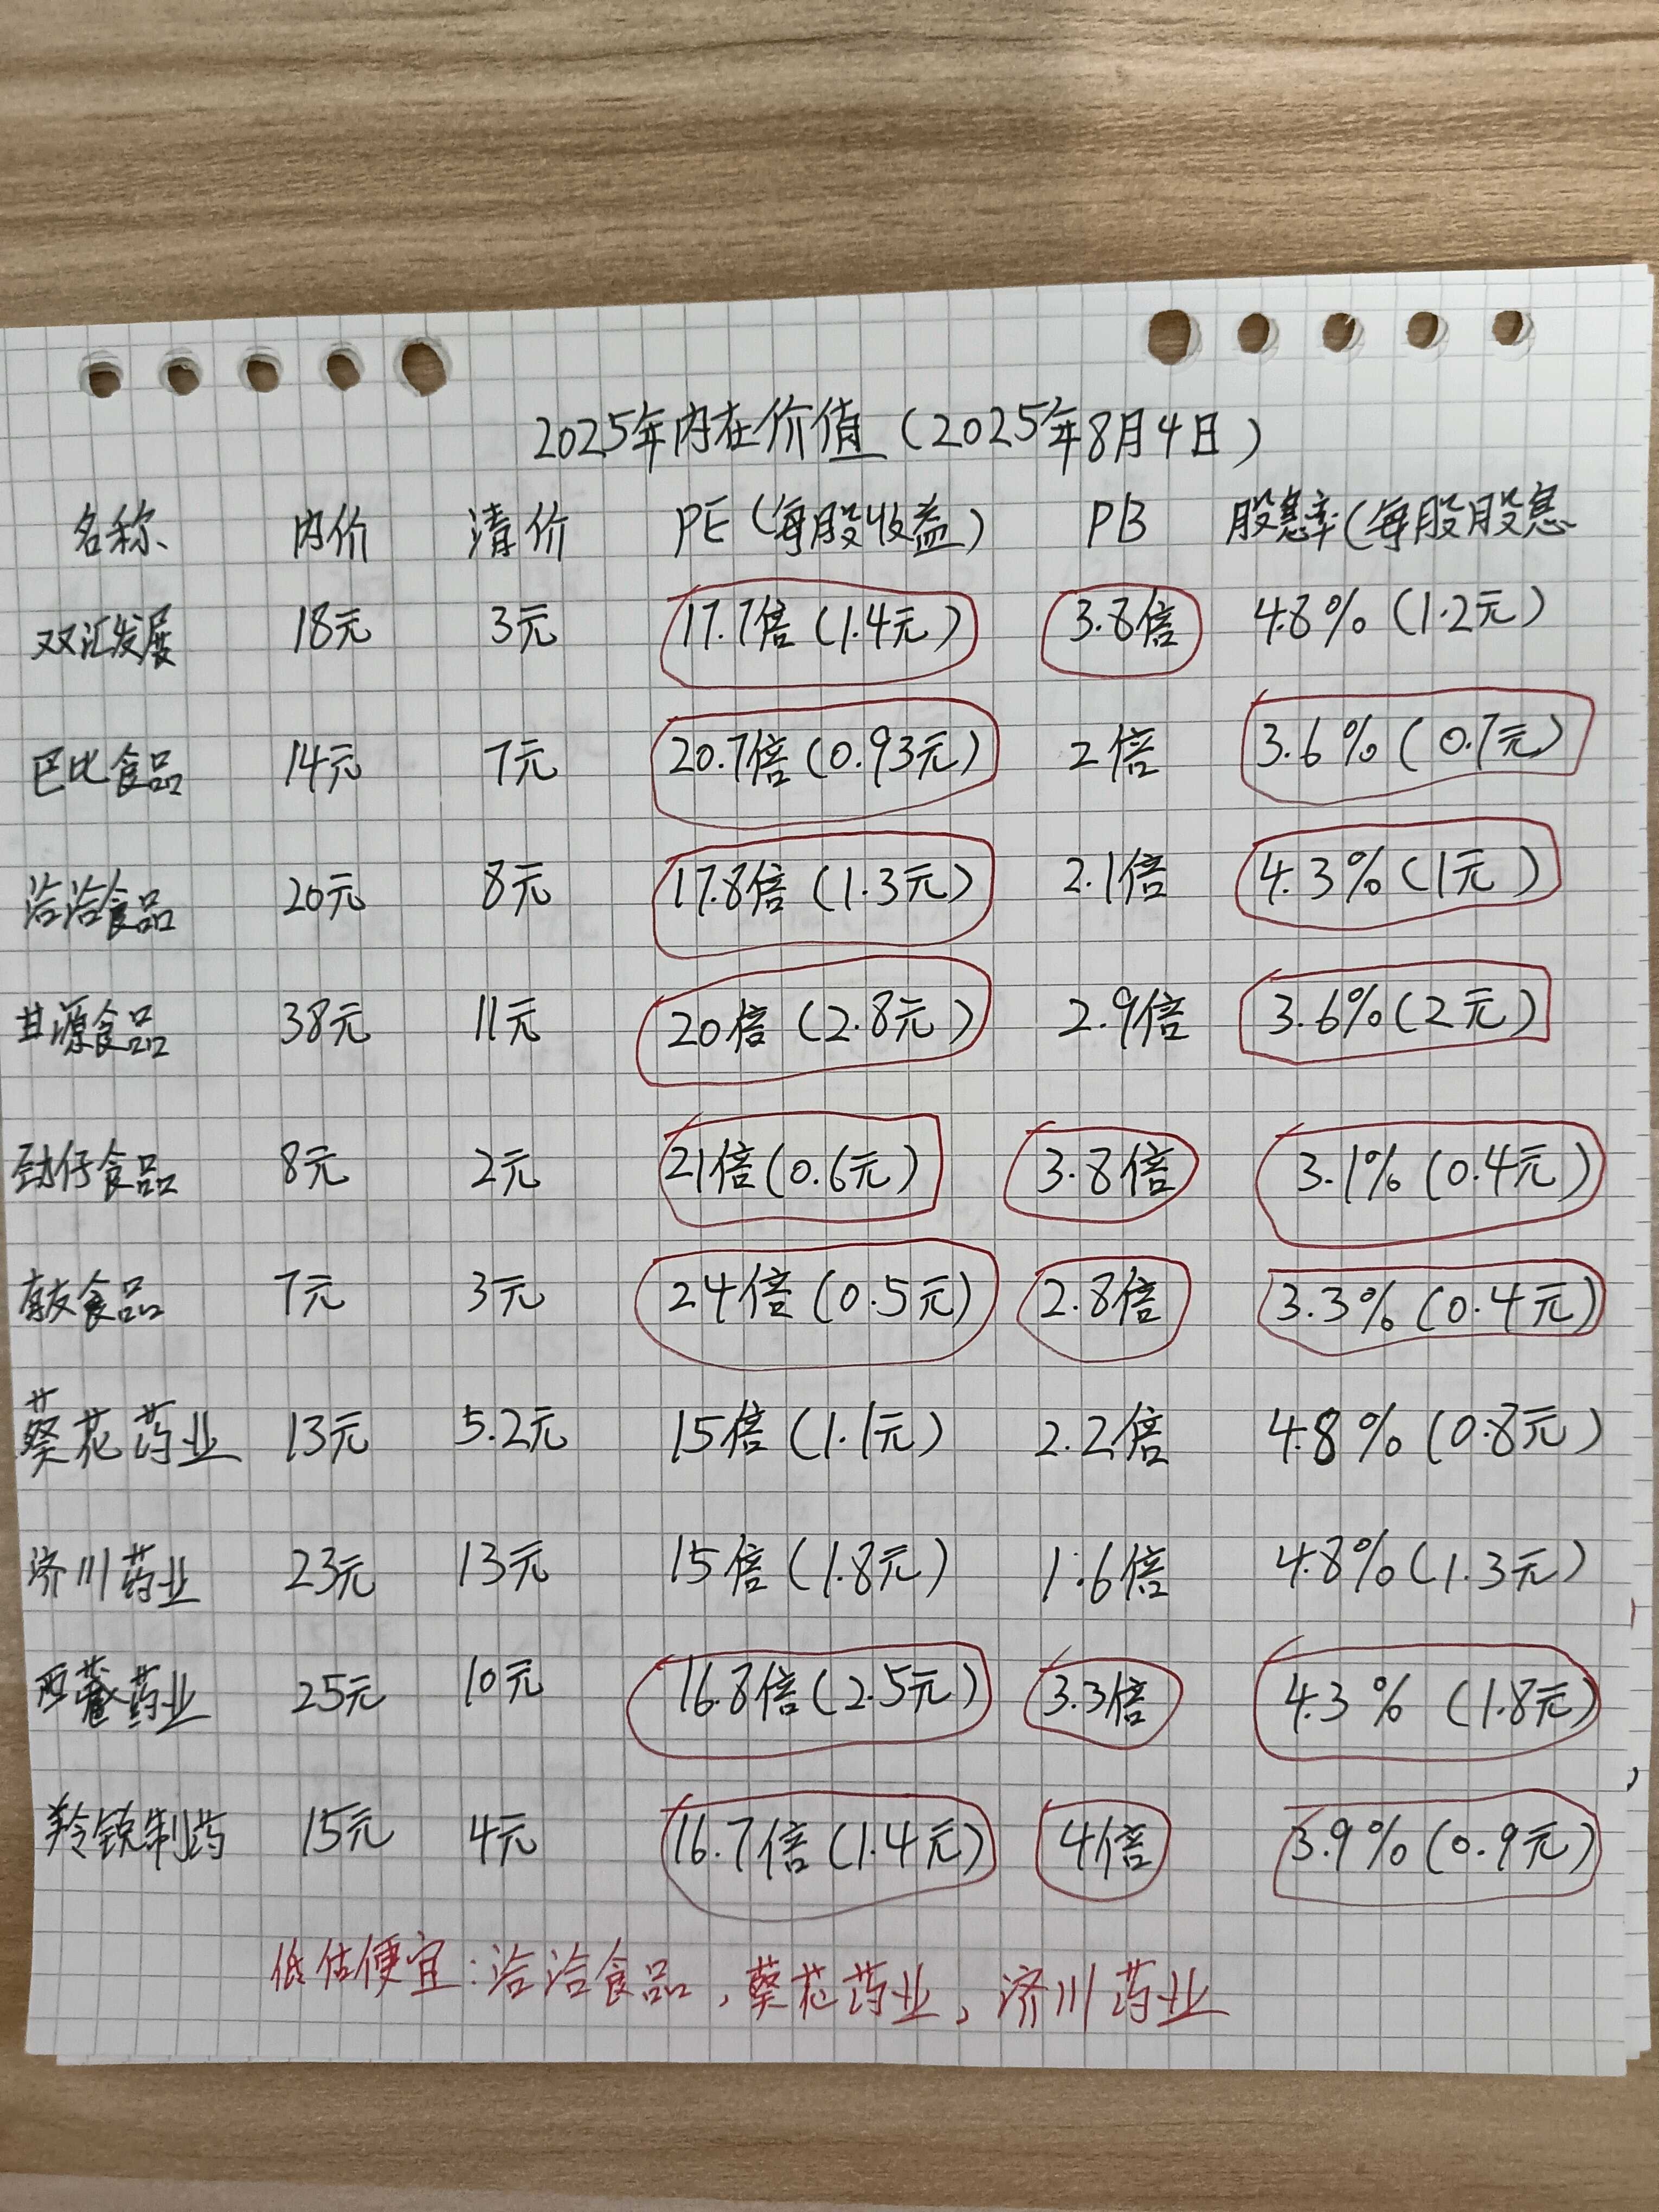 2025年内在价值（2025年8月4日）
名称 内价 清价 PE（每股收益） PB 股息率（每股股息
双汇发展 18元 3元 17.7倍（1.4元） 3.8倍 4.8%（1.2元）
巴比食品 14元 7元 20.7倍（0.93元） 2倍 3.6%（0.7元）
洽洽食品 20元 8元 17.8倍（1.3元） 2.1倍 4.3%（1元）
甘源食品 38元 11元 20倍（2.8元） 2.9倍 3.6%（2元）
劲仔食品 8元 2元 21倍（0.6元） 3.8倍 3.1%（0.4元）
有友食品 7元 3元 24倍（0.5元） 2.8倍 3.3%（0.4元）
葵花药业 13元 5.2元 15倍（1.1元） 2.2倍 4.8%（0.8元）
济川药业 23元 13元 15倍（1.8元） 1.6倍 4.8%（1.3元）
西藏药业 25元 10元 16.8倍（2.5元） 3.3倍 4.3%（1.8元）
羚锐制药 15元 4元 16.7倍（1.4元） 4倍 3.9%（0.9元）
低估便宜：洽洽食品，葵花药业，济川药业